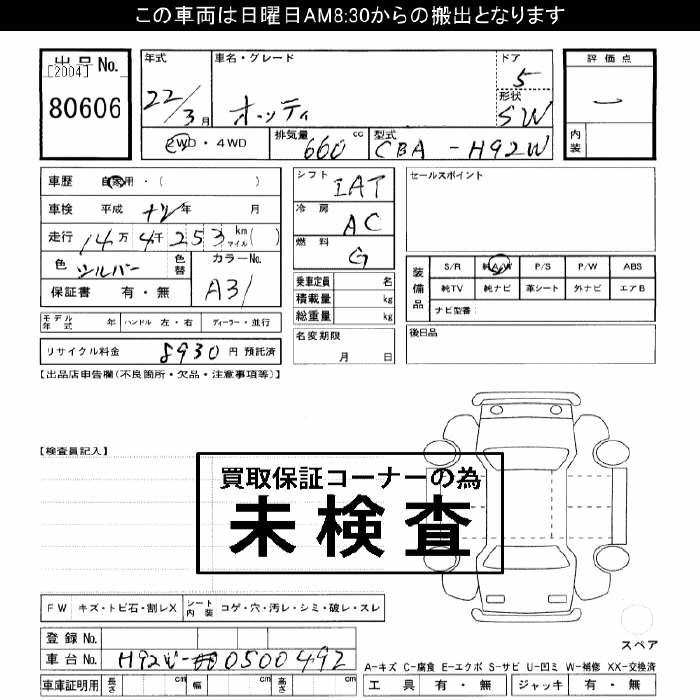 この車両は日曜日AM8:30からの搬出となります
出品No.
[2004]
80606
年式 22/3月
車名・グレード オッティ
ドア 5
形状 SW
2WD・4WD
排気量 660 cc
型式 CBA-H92W
評価点
内装
車歴 自家用・( )
車検 平成 年 月
走行 14万 4千 253 km マイル ( )
色 シルバー 色替
カラーNo. A31
保証書 有・無
シフト IAT
冷房 AC
燃料 G
乗車定員 名
積載量 kg
総重量 kg
名変期限 月 日
セールスポイント
装備品
S/R 純A/W P/S P/W ABS
純TV 純ナビ 革シート 外ナビ エアB
ナビ型番:
後日品
モデル年式 年 ハンドル 左・右 ディーラー・並行
リサイクル料金 8930 円 預託済
【出品店申告欄(不良箇所・欠品・注意事項等)】
【検査員記入】
買取保証コーナーの為
未検査
FW キズ・トビ石・割レX シート内装 コゲ・穴・汚レ・シミ・破レ・スレ
登録No.
車台No. H92W-0500492
車庫証明用 長さ cm 幅 cm 高さ cm
スペア
A-キズ C-腐食 E-エクボ S-サビ U-凹ミ W-補修 XX-交換済
工具 有・無 ジャッキ 有・無